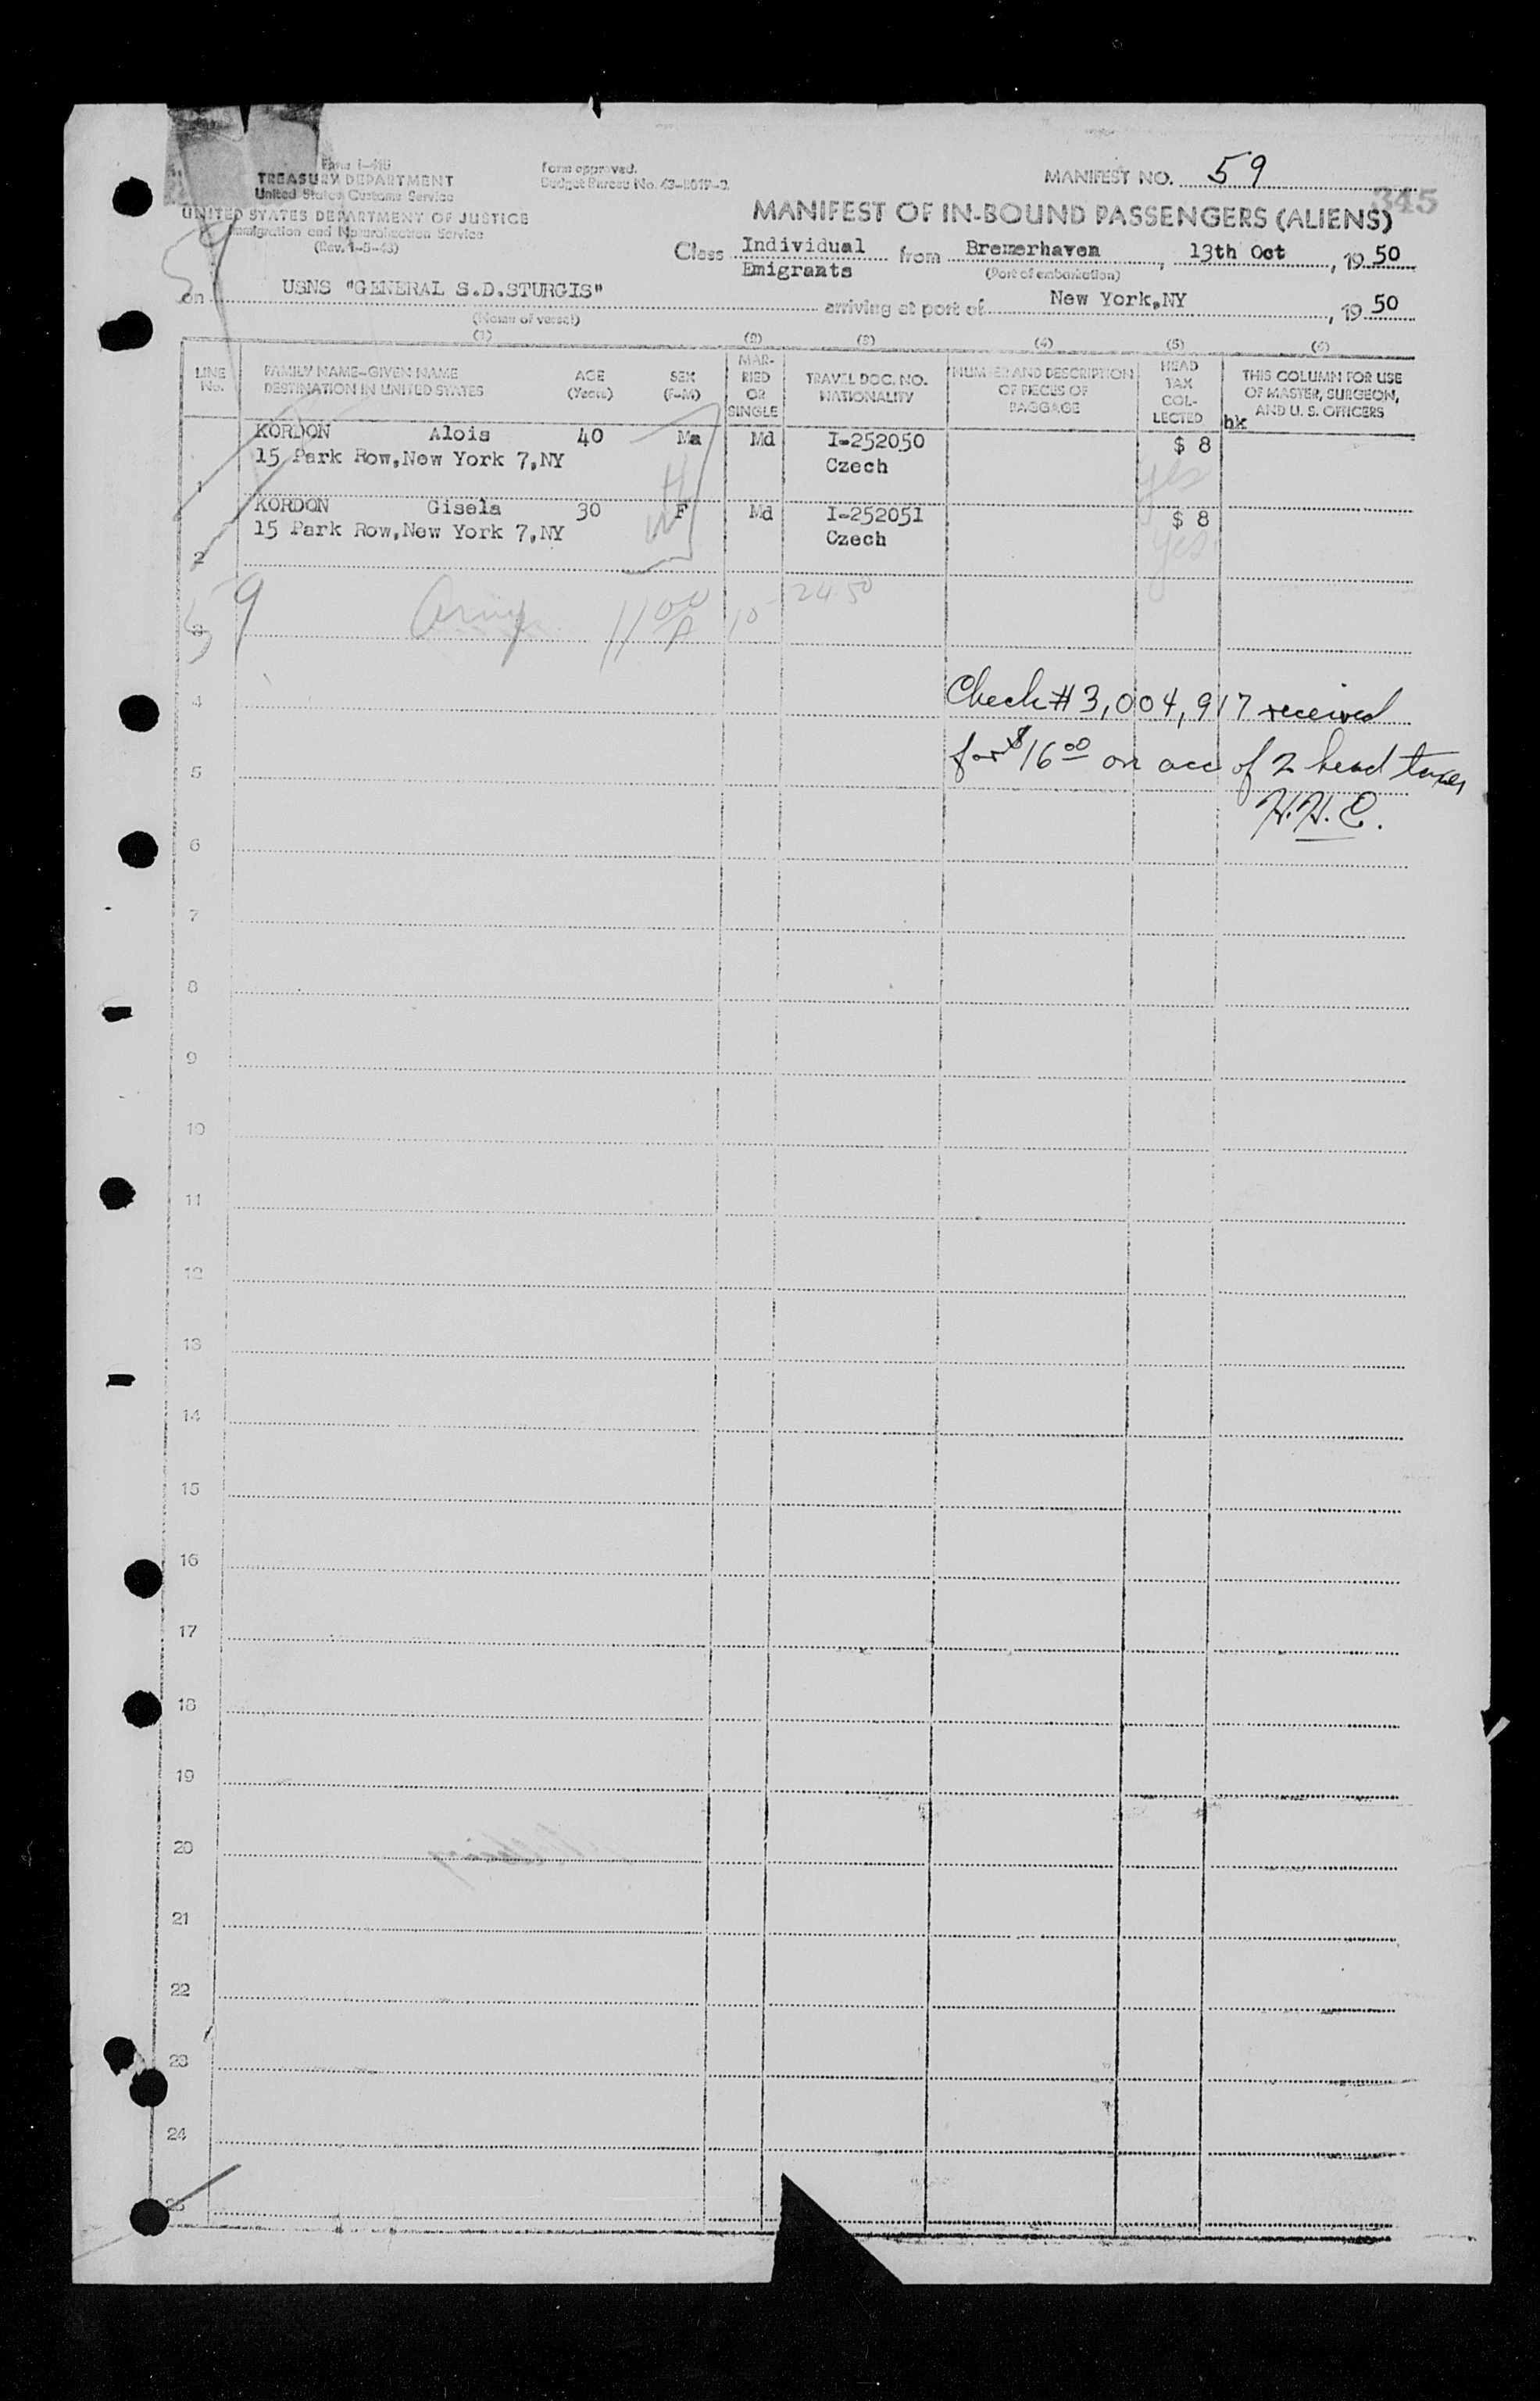 Form I-418
TREASURY DEPARTMENT
United States Customs Service
UNITED STATES DEPARTMENT OF JUSTICE
Immigration and Naturalization Service
(Rev. 1-5-43)
Form approved.
Budget Bureau No.
MANIFEST NO. 59
345
MANIFEST OF IN-BOUND PASSENGERS (ALIENS)
Class Individual Emigrants from Bremerhaven, 13th Oct, 19 50
(Port of embarkation)
on USNS "GENERAL S.D.STURGIS" arriving at port of New York,NY, 19 50
(Name of vessel)
(1) (2) (3) (4) (5) (6)
LINE No.
FAMILY NAME-GIVEN NAME
DESTINATION IN UNITED STATES
AGE (Years)
SEX (F-M)
MAR-RIED OR SINGLE
TRAVEL DOC. NO. NATIONALITY
NUMBER AND DESCRIPTION OF PIECES OF BAGGAGE
HEAD TAX COL-LECTED
THIS COLUMN FOR USE OF MASTER, SURGEON, AND U. S. OFFICERS
hk
KORDON Alois 40 Ma Md I-252050 $ 8
15 Park Row,New York 7,NY Czech yes
1
KORDON Gisela 30 F Md I-252051 $ 8
15 Park Row,New York 7,NY Czech yes
2
59 Army 11 00 A 10 24 50
3
4 Check # 3,004,917 received
5 for $16 00 on acc of 2 head taxes
H.H.C.
6
7
8
9
10
11
12
13
14
15
16
17
18
19
20
21
22
23
24
25